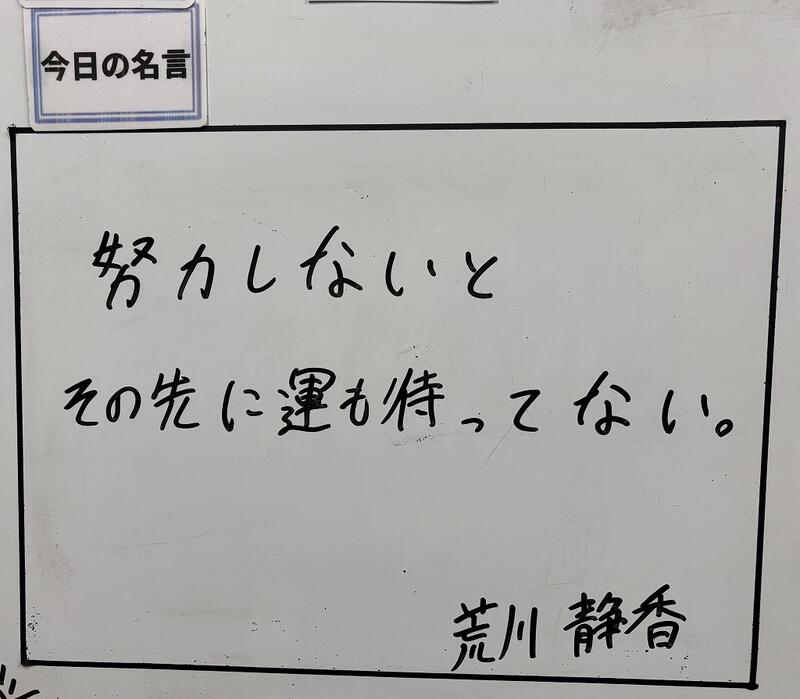 今日の名言
努力しないと
その先に運も待ってない。
荒川 静香